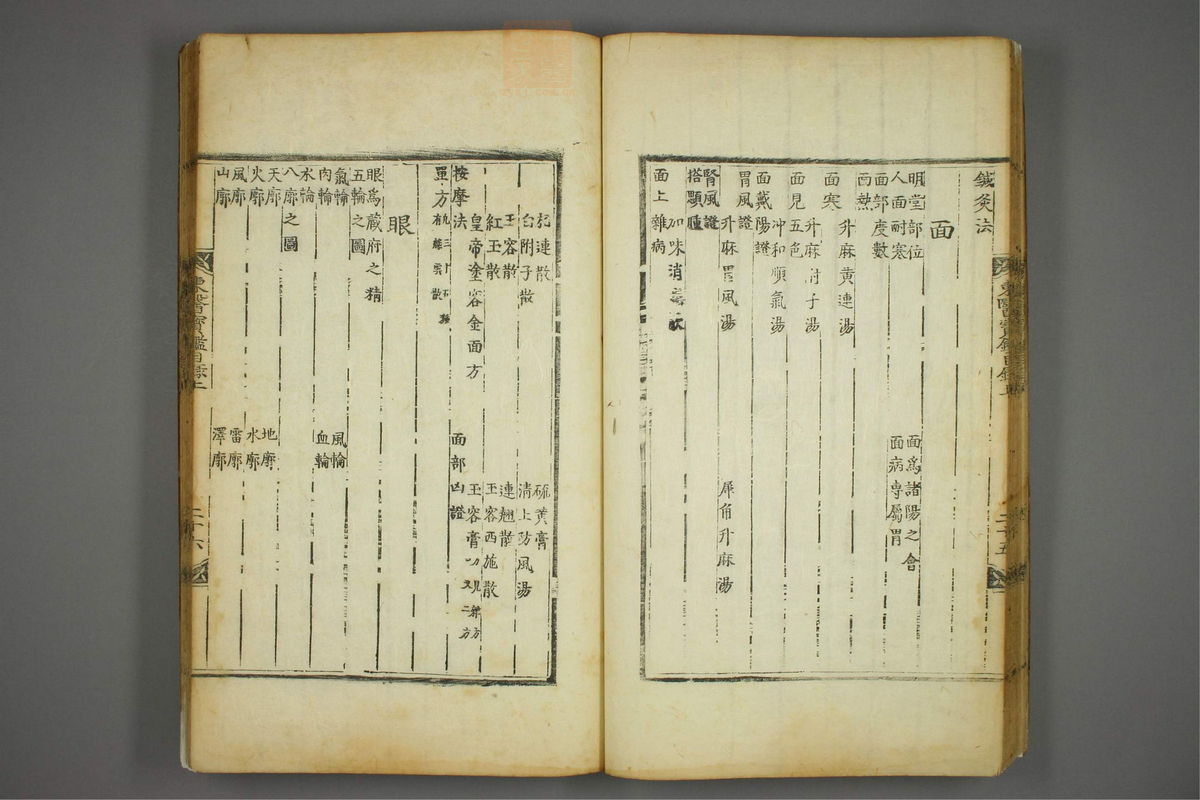 鍼灸法
面
明堂部位
面爲諸陽之會
人面耐寒
面病專屬胃
面部度數
面熱
升麻黃連湯
面寒
升麻附子湯
面見五色
沖和順氣湯
面戴陽證
胃風證
升麻胃風湯
犀角升麻湯
腎風證
搭顋腫
加味消毒飮
面上雜病
東醫寶鑑目錄上
二十五
杞連散
硫黃膏
白附子散
淸上防風湯
玉容散
連翹散
紅玉散
玉容西施散
皇帝塗容金面方
玉容膏
按摩法
面部凶證
單方
眼
眼爲藏府之精
五輪之圖
氣輪
風輪
肉輪
血輪
水輪
八廓之圖
天廓
地廓
火廓
水廓
風廓
雷廓
山廓
澤廓
東醫寶鑑目錄上
二十六